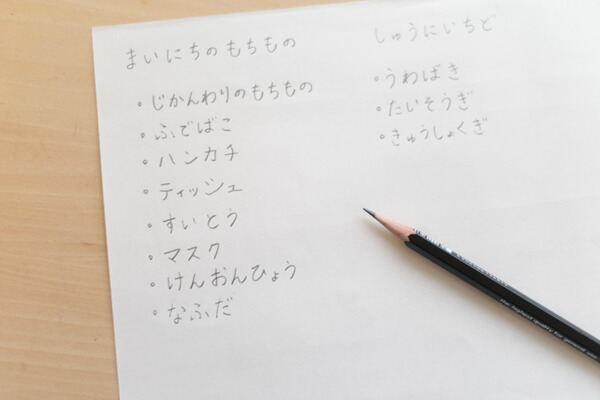 まいにちのもちもの
・じかんわりのもちもの
・ふでばこ
・ハンカチ
・ティッシュ
・すいとう
・マスク
・けんおんひょう
・なふだ
しゅうにいちど
・うわばき
・たいそうぎ
・きゅうしょくぎ